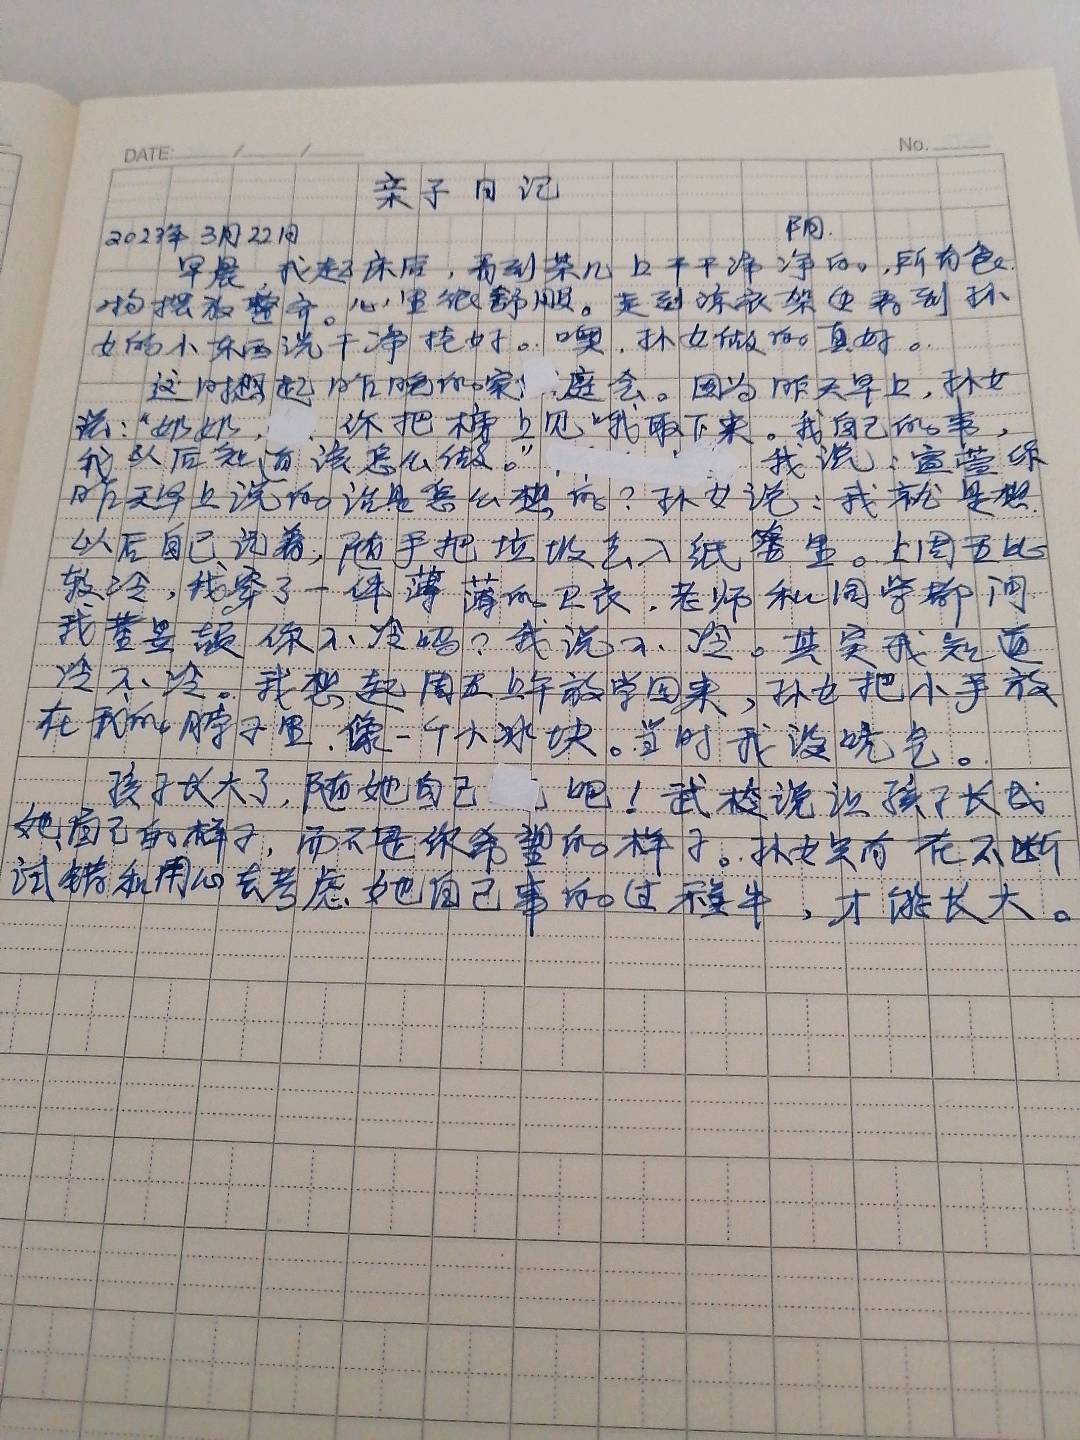 DATE: / /
No.
亲子日记
2023年3月22日 阴.
早晨,我起床后,看到茶几上干干净净的,所有食
物摆放整齐。心里很舒服。走到凉衣架边看到孙
女的小东西洗干净挂好。噢,孙女做的真好。
这时想起昨晚的家庭会。因为昨天早上,孙女
说:“奶奶, 你把墙上见“我取下来。我自己的事,
我以后知道该怎么做。” 我说:宣萱你
昨天早上说的话是怎么想的?孙女说:我就是想
以后自己说着,随手把垃圾丢入纸篓里。上周五比
较冷,我穿了一件薄薄的卫衣,老师和同学都问
我 你不冷吗?我说不冷。其实我知道
冷不冷。我想起周五上午放学回来,孙女把小手放
在我的脖子里,像一个大冰块。当时我没吭气。
孩子长大了,随她自己吧!武校说让孩子长成
她自己的样子,而不是你希望的样子。孙女只有在不断
试错和用心去考虑她自己事的过程中,才能长大。